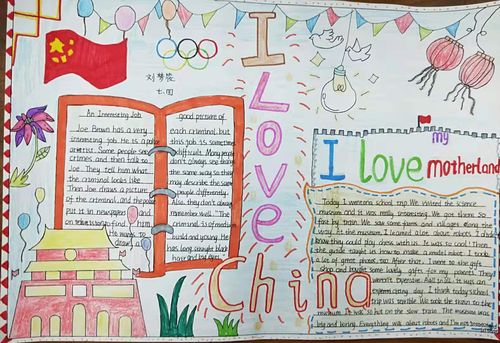 刘梦莹
七.四
I Love China
An Interesting Job
Joe Brown has a very
interesting job. He is a police
artist. Some people see
crimes and then talk to
Joe. They tell him what
the criminal looks like.
Then Joe draws a picture
of the criminal, and the police
put it in newspapers and
on television to find him.
He wants to
draw a
good picture of
each criminal, but
this job is sometimes
difficult. Many people
don't always see things
the same way so they
may describe the same
people differently.
Also, they don't always
remember well. "The
criminal is of medium
build and young. He
has long straight black
hair and big eyes."
I love my motherland
Today I went on a school trip. We visited the science
museum and it was really interesting. We got there so
fast by train. We saw some farms and villages along the
way. At the museum, I learned a lot about robots. I didn't
know they could play chess with us. It was so cool! Then
the guide taught us how to make a model robot. I took
a lot of great photos, too. After that, I went to the gift
shop and bought some lovely gifts for my parents. They
weren't expensive. All in all, it was an
exciting day. I think today's school
trip was terrible. We took the train to the
museum. It was so hot on the slow train. The museum was
big and boring. Everything was about robots and I'm not interested